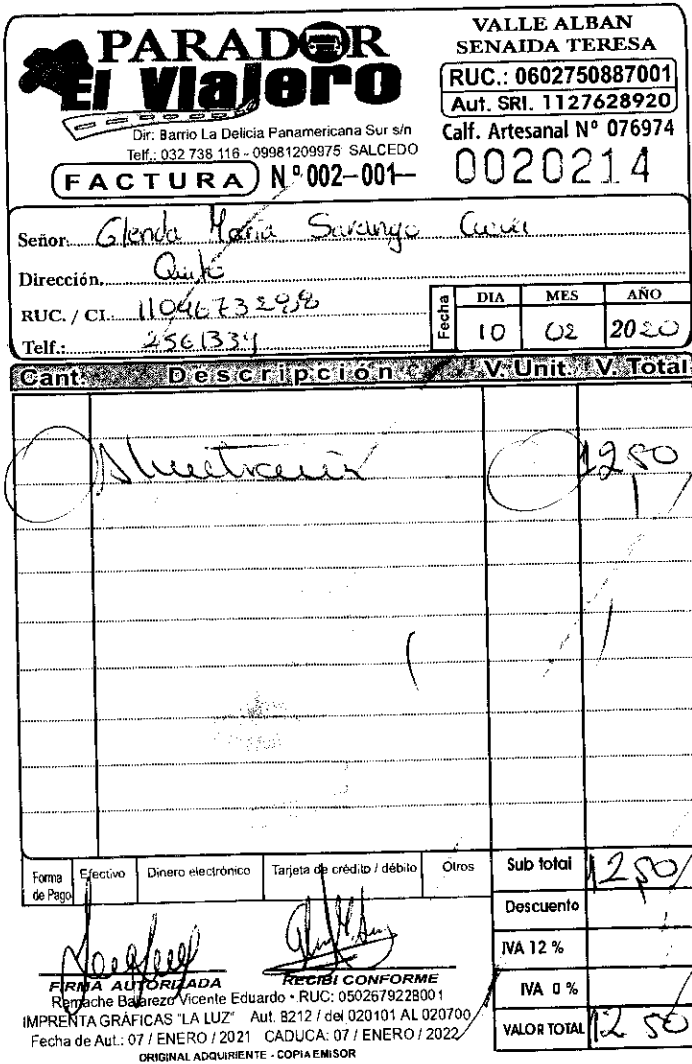 PARADOR
El Viajero
Dir: Barrio La Delicia Panamericana Sur s/n
Telf.: 032 738 116 - 09981209975 SALCEDO
FACTURA Nº 002-001-
VALLE ALBAN
SENAIDA TERESA
RUC.: 0602750887001
Aut. SRI. 1127628920
Calf. Artesanal Nº 076974
0020214
Señor: Glenda María Sarango
Dirección. Quito
RUC. / CI.: 1104673298
Telf.: 2561334
Fecha DIA MES AÑO
10 02 2020
Cant. Descripción V. Unit. V. Total
1250
Forma de Pago Efectivo Dinero electrónico Tarjeta de crédito / débito Otros
Sub total 12,50
Descuento
IVA 12 %
IVA 0 %
VALOR TOTAL 12 50
FIRMA AUTORIZADA RECIBI CONFORME
Remache Balarezo Vicente Eduardo • RUC: 0502679228001
IMPRENTA GRÁFICAS "LA LUZ" Aut. 8212 / del 020101 AL 020700
Fecha de Aut.: 07 / ENERO / 2021 CADUCA: 07 / ENERO / 2022
ORIGINAL ADQUIRIENTE - COPIA EMISOR